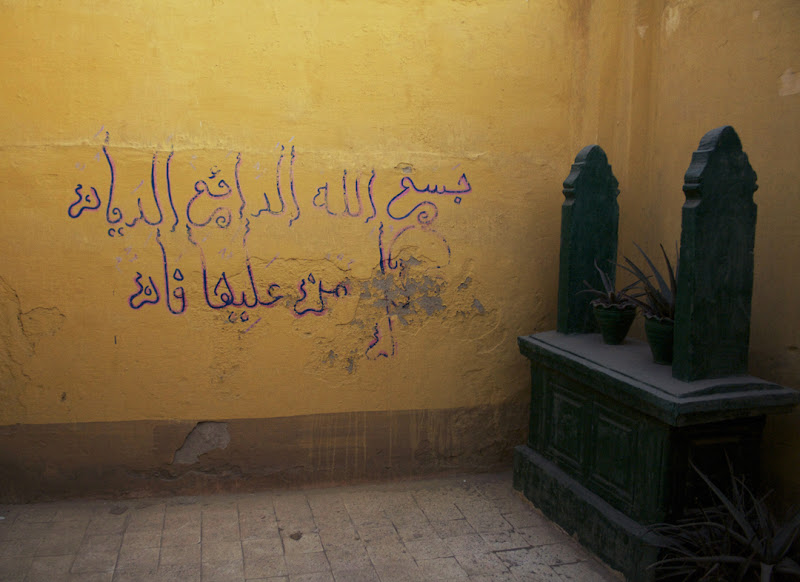 بسم الله الدائم الديان
من عليها فان